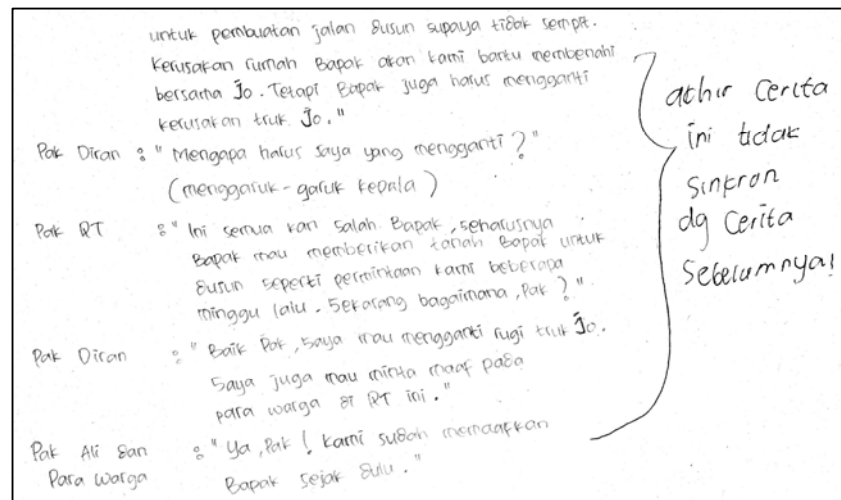 untuk pembuatan jalan dusun supaya tidak sempit.
Kerusakan rumah Bapak akan kami bantu membenahi
bersama Jo. Tetapi Bapak juga harus mengganti
kerusakan truk Jo."
Pak Diran : "Mengapa harus saya yang mengganti?"
(menggaruk-garuk kepala)
Pak RT : "Ini semua kan salah Bapak, seharusnya
Bapak mau memberikan tanah Bapak untuk
dusun seperti permintaan kami beberapa
minggu lalu. Sekarang bagaimana, Pak?"
Pak Diran : "Baik Pak, saya mau mengganti rugi truk Jo.
Saya juga mau minta maaf pada
para warga di RT ini."
Pak Ali dan : "Ya, Pak! kami sudah memaafkan
Para warga Bapak sejak dulu."
akhir cerita
ini tidak
sinkron
dg cerita
sebelumnya!